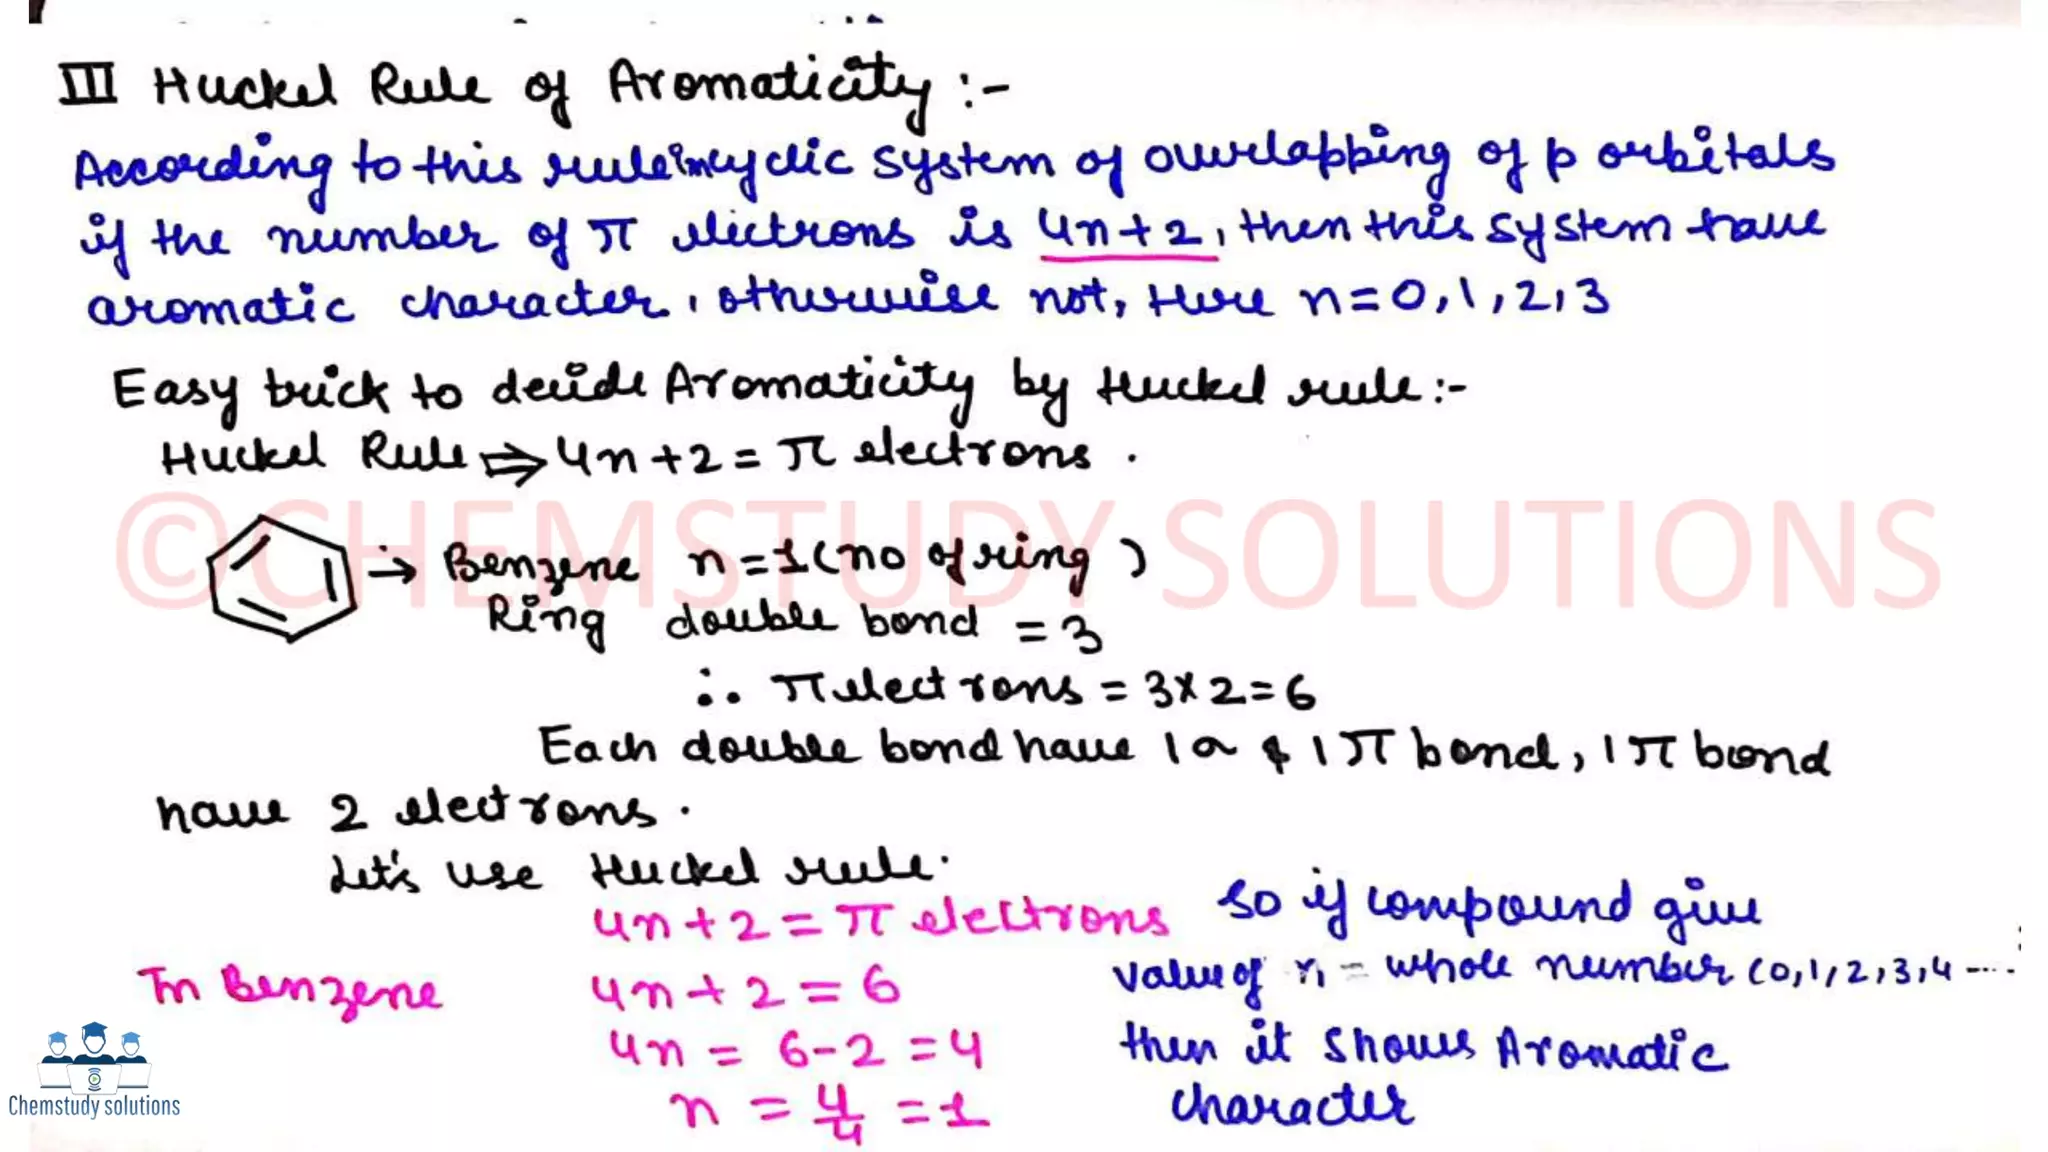 III Huckel Rule of Aromaticity :-
According to this rule in cyclic system of overlapping of p orbitals
if the number of π electrons is 4n+2, then this system have
aromatic character, otherwise not, Here n=0,1,2,3
Easy trick to decide Aromaticity by Huckel rule:-
Huckel Rule ⇒ 4n+2 = π electrons.
©CHEMSTUDY SOLUTIONS
→ Benzene n=1 (no of ring)
Ring double bond = 3
∴ π electrons = 3×2=6
Each double bond have 1 σ & 1 π bond, 1 π bond
have 2 electrons.
Let's use Huckel rule.
4n+2 = π electrons
In Benzene 4n+2 = 6
4n = 6-2 = 4
n = 4/4 = 1
So if compound give
value of n = whole number (0,1,2,3,4 ----
then it shows Aromatic
character
Chemstudy solutions